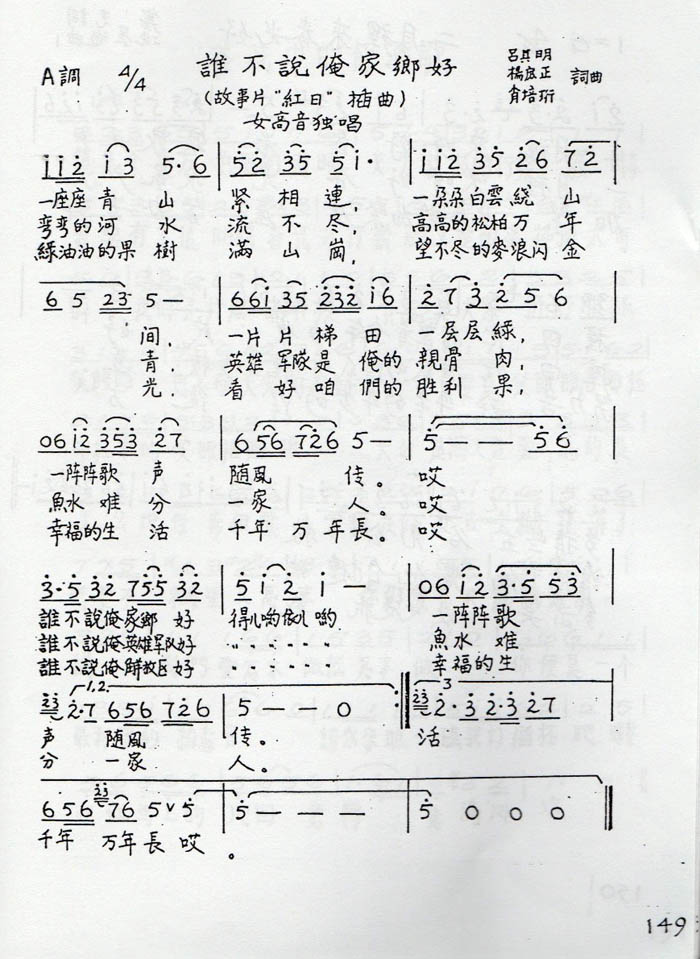 誰不說俺家鄉好
A調 4/4
(故事片"紅日"插曲)
女高音独唱
呂其明
楊庶正 詞曲
肖培珩
i i 2 i 3 5·6 | 5 2 3 5 5 i· | i i 2 3 5 2 6 7 2 |
一座座青 山 緊 相 連, 一朵朵白雲繞 山
彎彎的河 水 流 不 尽, 高高的松柏万 年
綠油油的果 樹 滿 山 崗, 望不尽的麥浪闪 金
6 5 2 3 5 — | 6 6 i 3 5 2 3 2 i 6 | 2 7 3 2 5 6 |
间, 一片 片 梯 田 一层层綠,
青, 英雄 軍隊是 俺的 親骨 肉,
光. 看 好 咱 們的 胜利 果,
0 6 i 2 3 5 3 2 7 | 6 5 6 7 2 6 5 — | 5 — — 5 6 |
一阵阵歌 声 随風 传。 哎
魚水 难 分 一家 人。 哎
幸福的生 活 千年 万 年長。 哎
3·5 3 2 7 5 5 3 2 | 5 i 2 i — | 0 6 i 2 3·5 5 3 |
誰不說俺家鄉 好 得儿喲依儿 喲 一阵阵歌
誰不說俺英雄軍队好 〃 〃 〃 〃 〃 魚水 难
誰不說俺解放区好 〃 〃 〃 〃 〃 幸福的生
1.2. 3
2 3 2·7 6 5 6 7 2 6 | 5 — — 0 :‖ 2 3 2·3 2·3 2 7 |
声 随風 传。 活
分 一家 人。
6 5 6 2 3 7 6 5 ∨ 5 | 5 — — — | 5 0 0 0 ‖
千年 万年長 哎 。
149